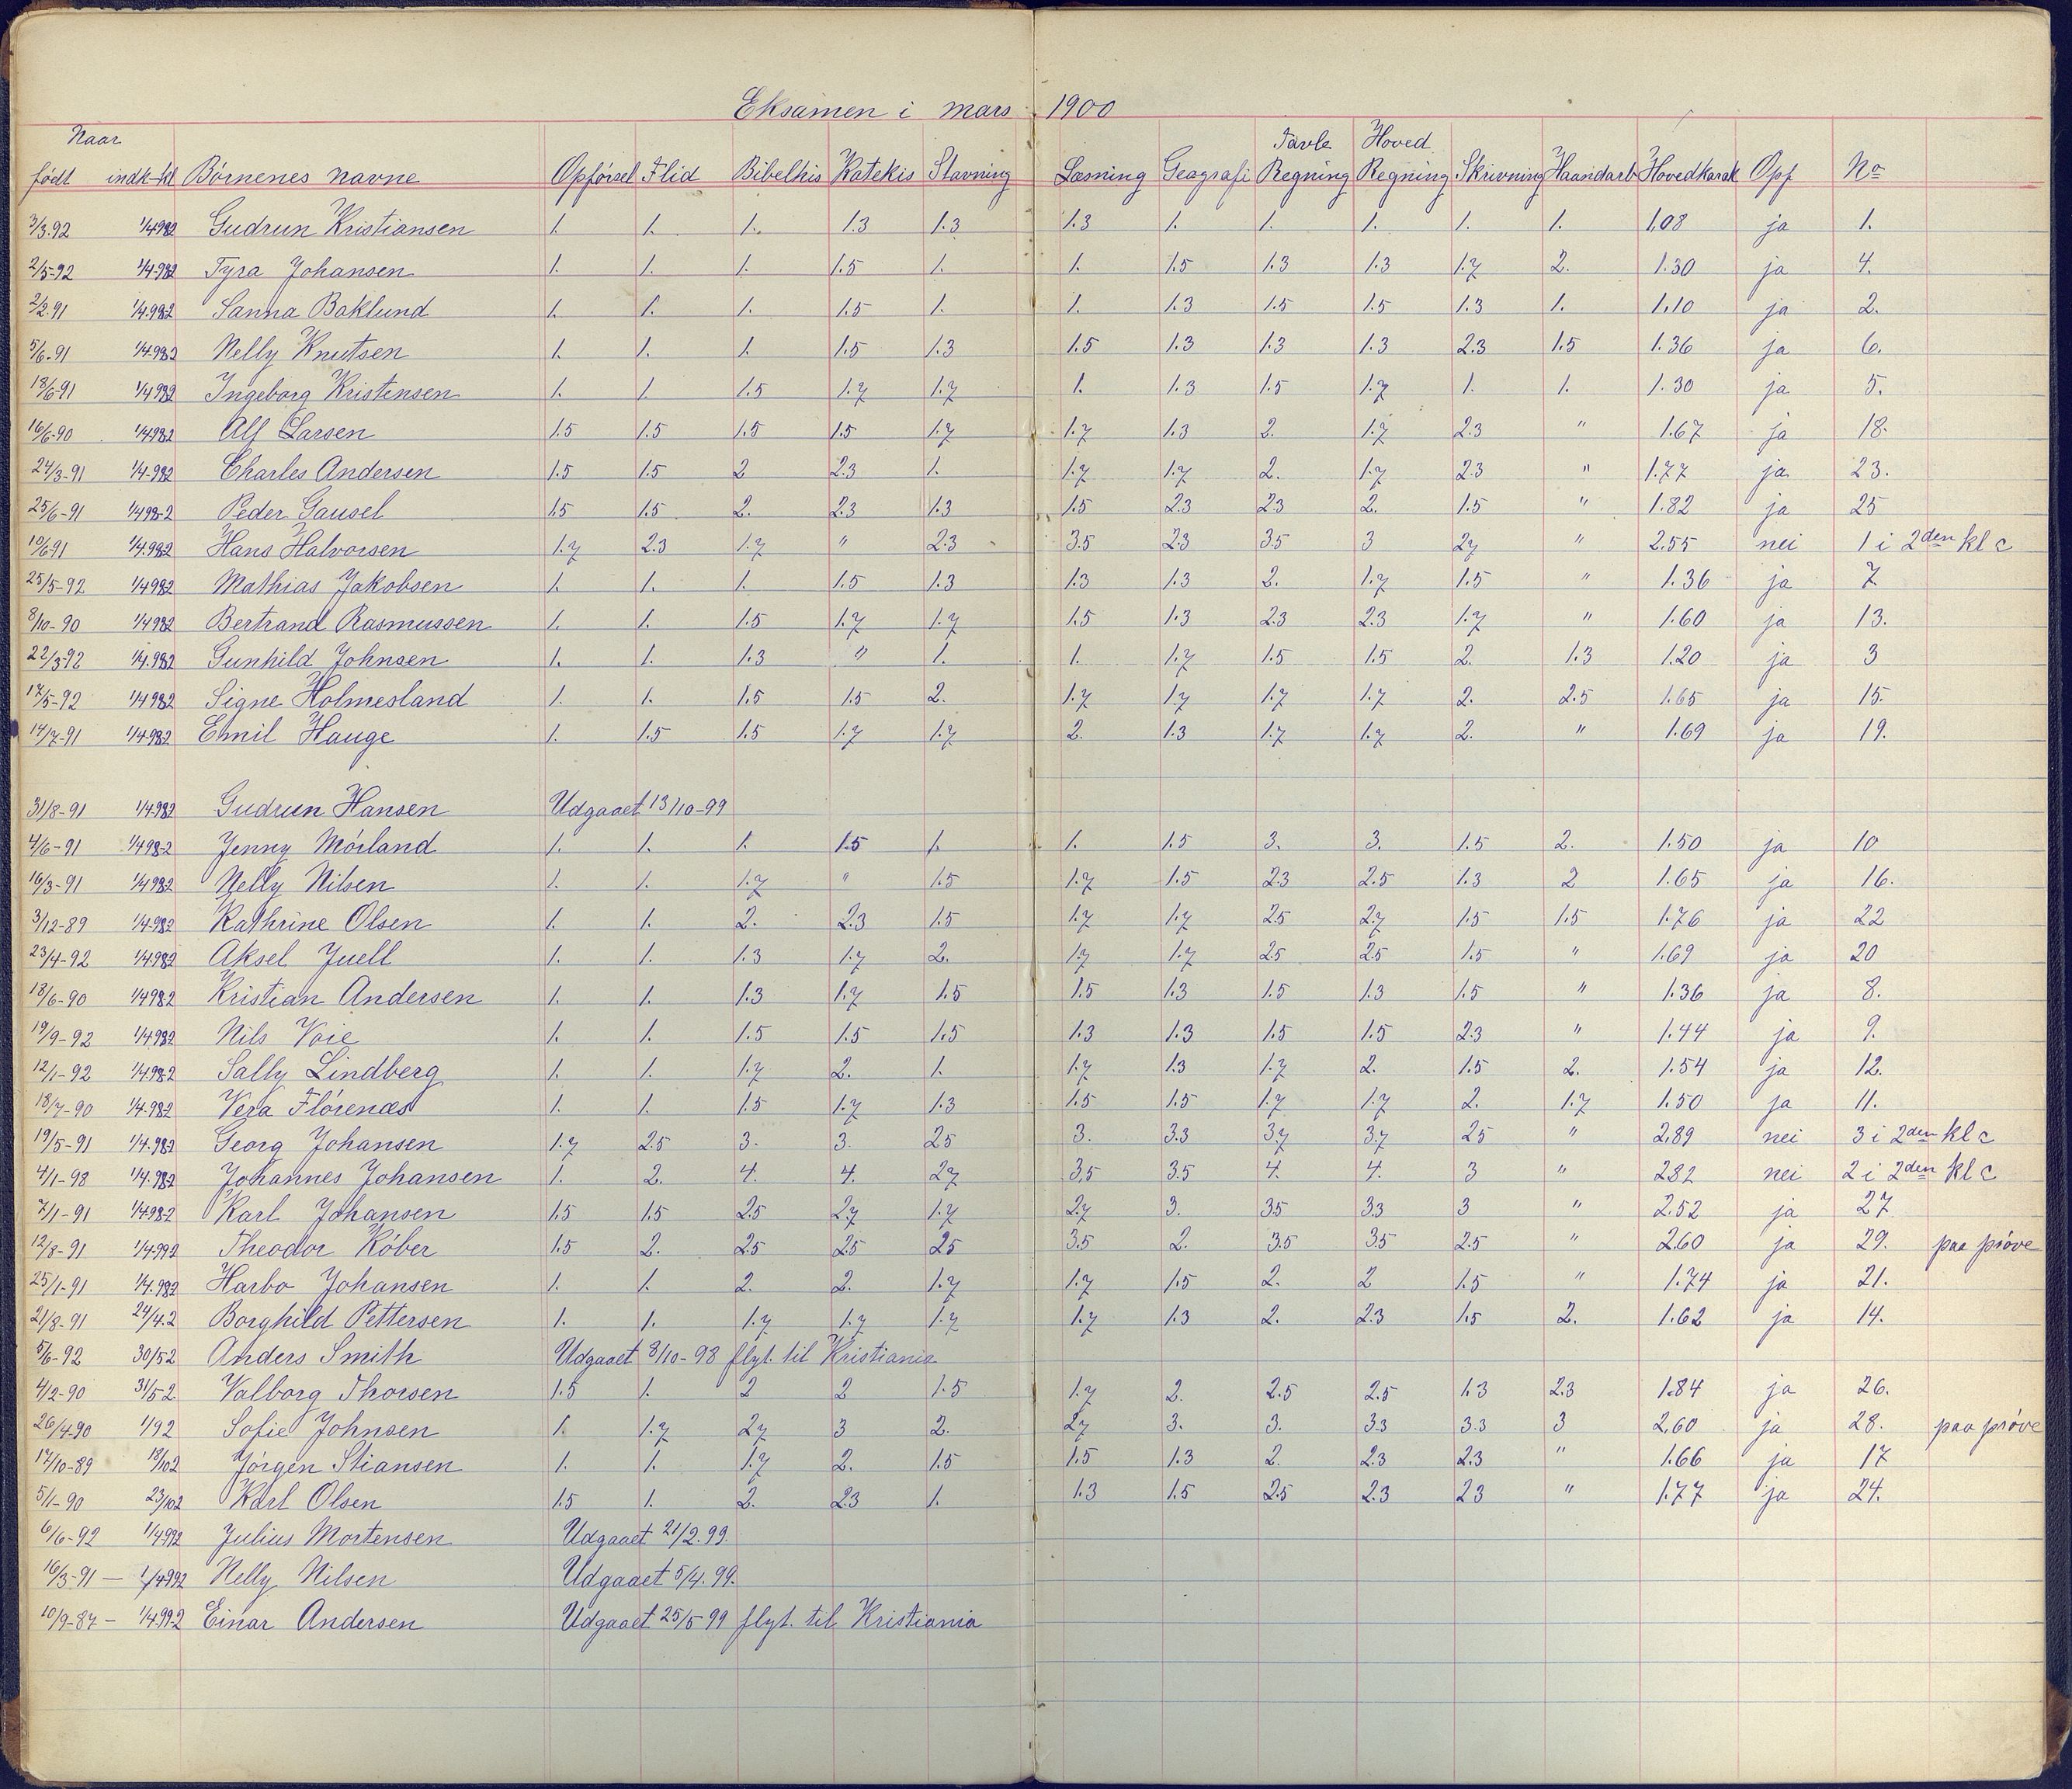 Eksamen i mars 1900
Naar
Tavle Hoved
født indk-kl Børnenes navne Opførsel Flid Bibelhis Katekis Stavning Læsning Geografi Regning Regning Skrivning Haandarb Hovedkarak Opf No
3/3.92 1/4982 Gudrun Kristiansen 1. 1. 1. 1.3 1.3 1.3 1. 1. 1. 1. 1. 1,08 ja 1.
2/5-92 1/4-982 Tyra Johansen 1. 1. 1. 1.5 1. 1. 1.5 1.3 1.3 1.7 2. 1.30 ja 4.
2/2.91 1/4.982 Sanna Baklund 1. 1. 1. 1.5 1. 1. 1.3 1.5 1.5 1.3 1. 1,10 ja 2.
5/6.91 1/4.982 Nelly Knutsen 1. 1. 1. 1.5 1.3 1.5 1.3 1.3 1.3 2.3 1.5 1.36 ja 6.
18/6-91 1/4982 Ingeborg Kristensen 1. 1. 1.5 1.7 1.7 1. 1.3 1.5 1.7 1. 1. 1.30 ja 5.
16/6-90 1/4982 Alf Larsen 1.5 1.5 1.5 1.5 1.7 1.7 1.3 2. 1.7 2.3 " 1.67 ja 18.
24/3-91 1/4-982 Charles Andersen 1.5 1.5 2 2.3 1. 1.7 1.7 2. 1.7 2.3 " 1.77 ja 23.
25/6-91 1/498-2 Peder Gausel 1.5 1.5 2. 2.3 1.3 1.5 2.3 2.3 2. 1.5 " 1.82 ja 25
10/6-91 1/4.982 Hans Halvorsen 1.7 2.3 1.7 " 2.3 3.5 2.3 3.5 3 2.7 " 2.55 nei 1 i 2den kl c
25/5-92 1/4982 Mathias Jakobsen 1. 1. 1. 1.5 1.3 1.3 1.3 2. 1.7 1.5 " 1.36 ja 7
8/10-90 1/4982 Bertrand Rasmussen 1. 1. 1.5 1.7 1.7 1.5 1.3 2.3 2.3 1.7 " 1.60 ja 13.
22/3-92 1/4.982 Gunhild Johnsen 1. 1. 1.3 " 1. 1. 1.7 1.5 1.5 2. 1.3 1.20 ja 3
17/5-92 1/4982 Signe Holmesland 1. 1. 1.5 1.5 2. 1.7 1.7 1.7 1.7 2. 2.5 1.65 ja 15.
14/7-91 1/4-982 Emil Hauge 1. 1.5 1.5 1.7 1.7 2. 1.3 1.7 1.7 2. " 1.69 ja 19.
31/8-91 1/4.982 Gudrun Hansen Udgaaet 13/10-99
4/6-91 1/498-2 Jenny Mörland 1. 1. 1. 1.5 1. 1. 1.5 3. 3. 1.5 2. 1.50 ja 10
16/3-91 1/4982 Nelly Nilsen 1. 1. 1.7 " 1.5 1.7 1.5 2.3 2.5 1.3 2 1.65 ja 16.
3/12-89 1/4-982 Kathrine Olsen 1. 1. 2. 2.3 1.5 1.7 1.7 2.5 2.7 1.5 1.5 1.76 ja 22
23/4-92 1/4.982 Aksel Juell 1. 1. 1.3 1.7 2. 1.7 1.7 2.5 2.5 1.5 " 1.69 ja 20
18/6-90 1/498-2 Kristian Andersen 1. 1. 1.3 1.7 1.5 1.5 1.3 1.5 1.3 1.5 " 1.36 ja 8.
19/9-92 1/4982 Nils Voie 1. 1. 1.5 1.5 1.5 1.3 1.3 1.5 1.5 2.3 " 1.44 ja 9.
12/1-92 1/4.98-2 Sally Lindberg 1. 1. 1.7 2. 1. 1.7 1.3 1.7 2. 1.5 2. 1.54 ja 12.
18/7-90 1/4.982 Vera Flörenæs 1. 1. 1.5 1.7 1.3 1.5 1.5 1.7 1.7 2. 1.7 1.50 ja 11.
19/5-91 1/4.982 Georg Johansen 1.7 2.5 3. 3. 2.5 3. 3.3 3.7 3.7 2.5 " 2,89 nei 3 i 2den kl c
4/1-98 1/4.982 Johannes Johansen 1. 2. 4. 4. 2.7 3,5 3.5 4. 4. 3 " 2.82 nei 2 i 2den kl c
7/1-91 1/4.98-2 Karl Johansen 1.5 1.5 2.5 2.7 1.7 2.7 3. 3.5 3.3 3 " 2.52 ja 27
12/8-91 1/4.992 Theodor Köber 1.5 2. 2.5 2.5 2.5 3.5 2. 3.5 3.5 2.5 " 2.60 ja 29. paa pröve
25/1-91 1/4.982 Harbo Johansen 1. 1. 2. 2. 1.7 1.7 1.5 2. 2 1.5 " 1.74 ja 21.
21/8-91 24/4.2 Borghild Pettersen 1. 1. 1.7 1.7 1.7 1.7 1.3 2. 2.3 1.5 2. 1.62 ja 14.
5/6-92 30/52 Anders Smith Udgaaet 8/10-98 flyt. til Kristiania
4/2-90 31/52 Valborg Thorsen 1.5 1. 2 2 1.5 1.7 2. 2.5 2.5 1.3 2.3 1.84 ja 26.
26/4.90 1/92 Sofie Johnsen 1. 1.7 2.7 3 2. 2.7 3. 3. 3.3 3.3 3 2,60 ja 28. paa pröve
17/10-89 18/102 Jörgen Stiansen 1. 1. 1.7 2. 1.5 1.5 1.3 2. 2.3 2.3 " 1.66 ja 17
5/1-90 23/102 Karl Olsen 1.5 1. 2. 2.3 1. 1.3 1.5 2.5 2.3 2.3 " 1.77 ja 24.
6/6-92 1/4992 Julius Mortensen Udgaaet 21/2.99.
16/3-91 — 1/4992 Nelly Nilsen Udgaaet 5/4.99.
10/9-87 — 1/4.99-2 Einar Andersen Udgaaet 25/5 99 flyt. til Kristiania